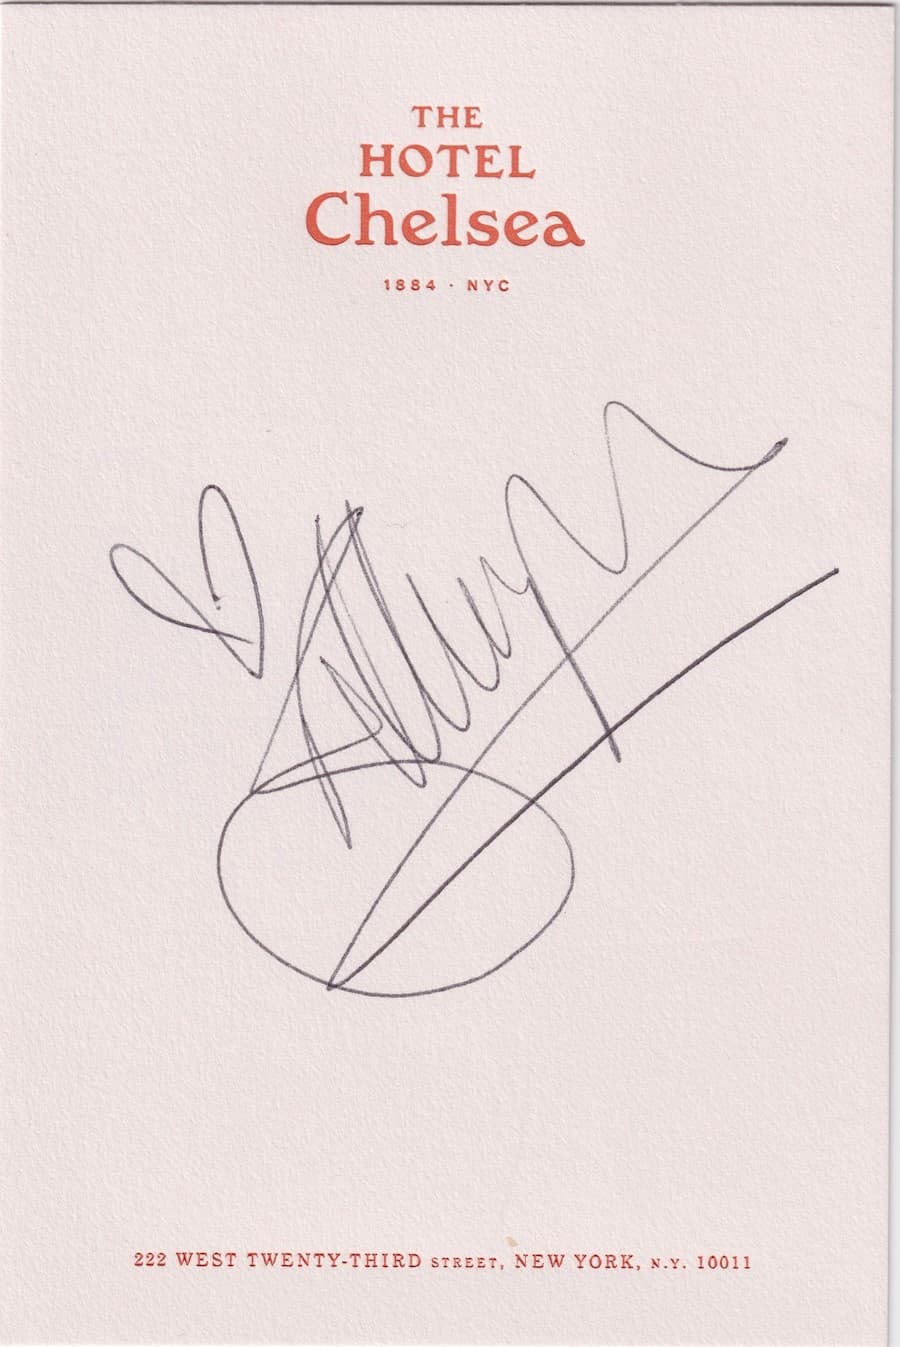 THE
HOTEL
Chelsea
1884 · NYC
222 WEST TWENTY-THIRD STREET, NEW YORK, N.Y. 10011